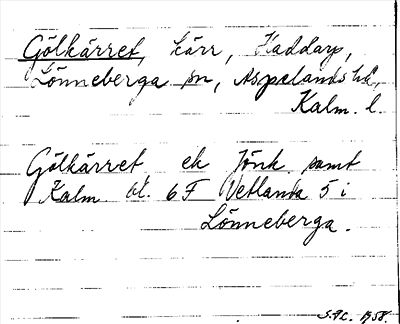 Gölkärret, kärr, Haddarp,
Lönneberga sn, Aspelands hd,
Kalm. l.
Gölkärret ek Jönk. samt
Kalm. bl. 6 F Vetlanda 5 i
Lönneberga.
1958.